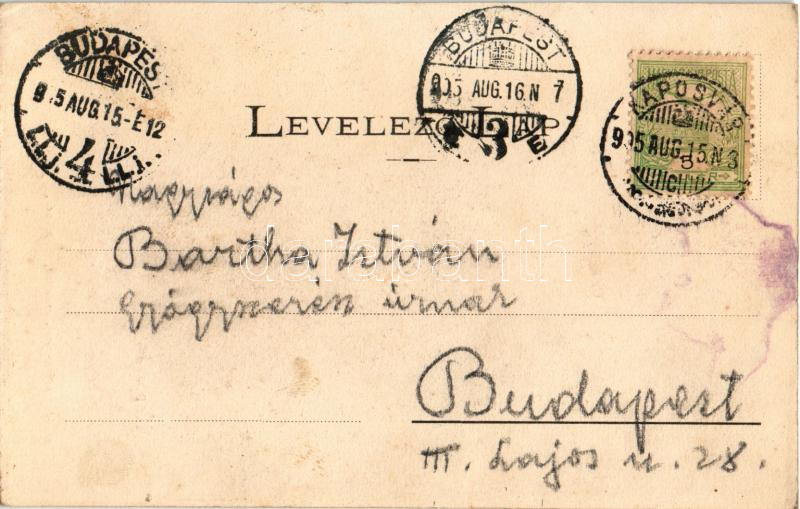 BUDAPEST
905 AUG.15-É12
4
BUDAPEST
905 AUG.16.N 7
3
KAPOSVÁR
905 AUG.15.N3
LEVELEZŐ-LAP
Nagyságos
Bartha István
Gyógyszerész úrnak
Budapest
III. Lajos u. 28.
darabanth